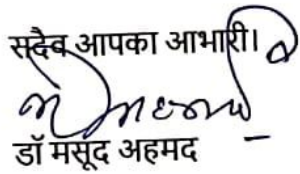 सदैव आपका आभारी।
डॉ मसूद अहमद